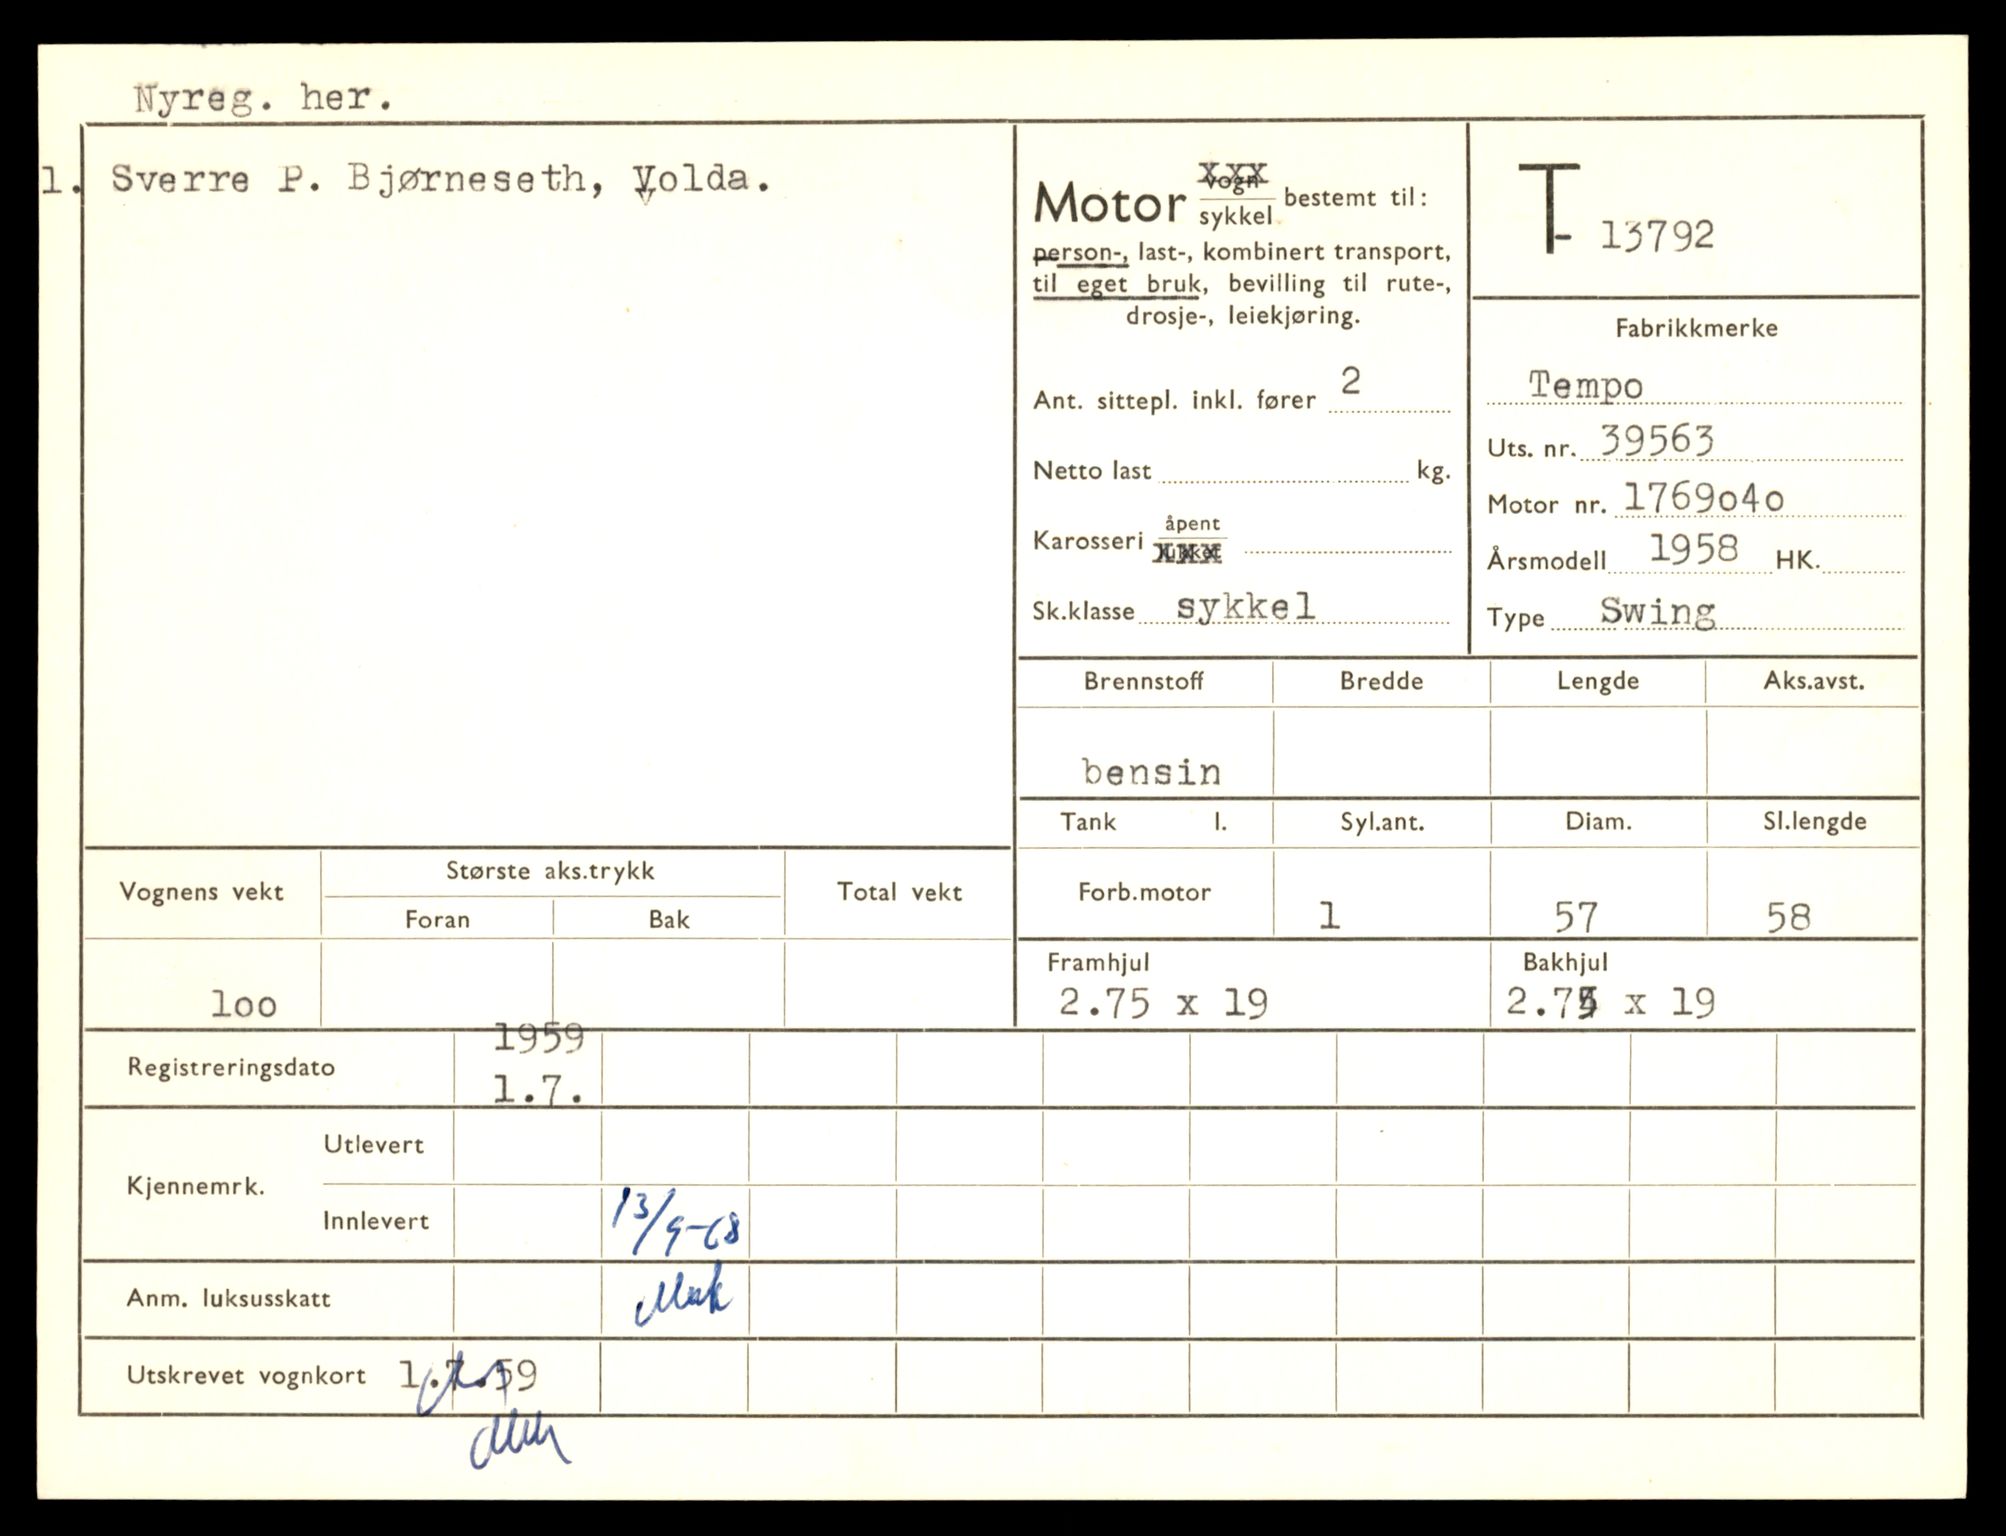 Nyreg. her.
1. Sverre P. Bjørneseth, Volda.
Motor vogn/sykkel bestemt til:
person-, last-, kombinert transport,
til eget bruk, bevilling til rute-,
drosje-, leiekjøring.
Ant. sittepl. inkl. fører 2
Netto last kg.
Karosseri åpent/lukket
Sk.klasse sykkel
T- 13792
Fabrikkmerke
Tempo
Uts. nr. 39563
Motor nr. 1769040
Årsmodell 1958 HK.
Type Swing
Brennstoff Bredde Lengde Aks.avst.
bensin
Tank l. Syl.ant. Diam. Sl.lengde
Forb.motor 1 57 58
Framhjul Bakhjul
2.75 x 19 2.75 x 19
Vognens vekt Største aks.trykk Total vekt
Foran Bak
100
1959
Registreringsdato
1.7.
Utlevert
Kjennemrk.
Innlevert 13/9-68
Anm. luksusskatt
Utskrevet vognkort 1.7.59